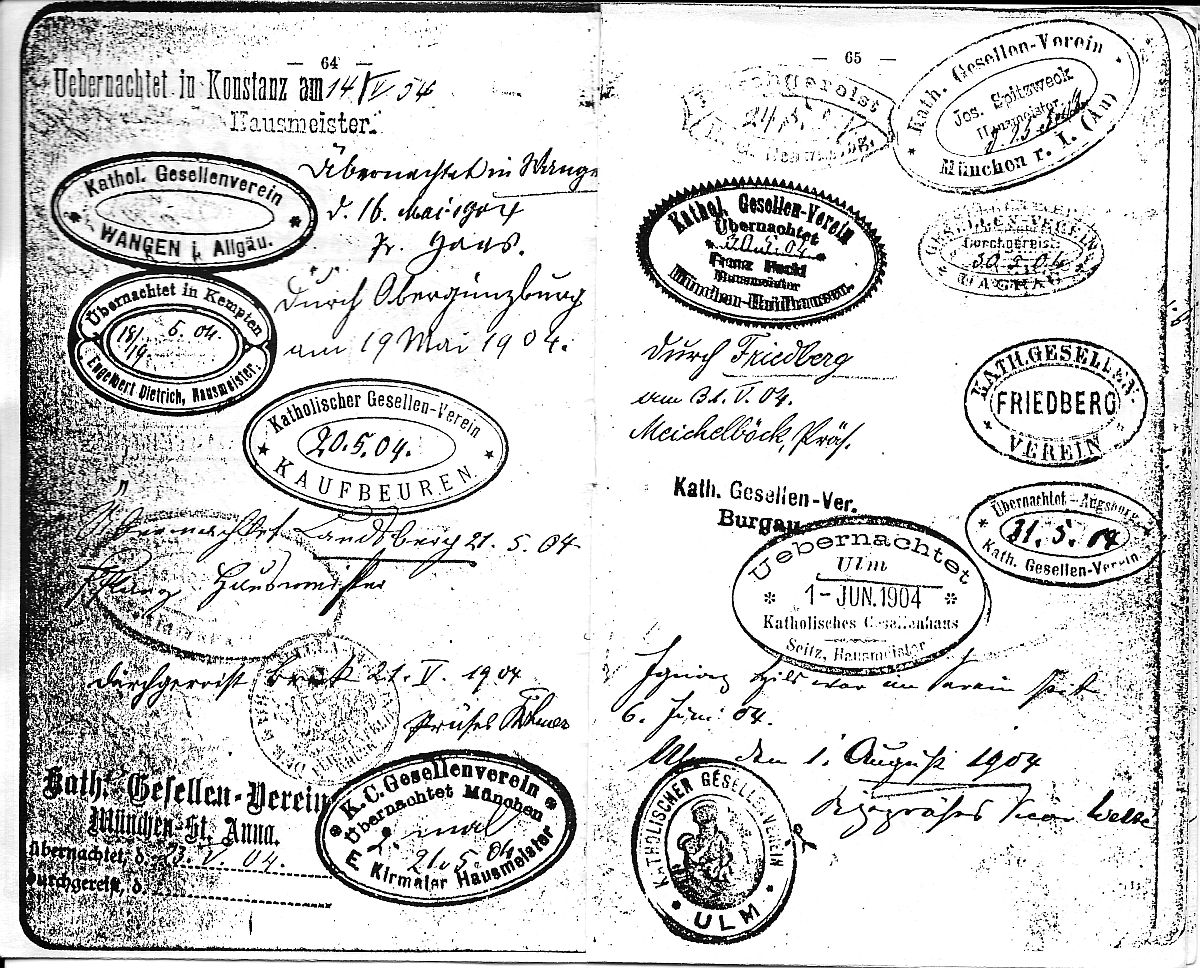 — 64 —
Uebernachtet in Konstanz am 14/V 04.
Hausmeister.
Kathol. Gesellenverein
WANGEN i. Allgäu.
Übernachtet in Wange
d. 16. Mai 1904
Haas.
Übernachtet in Kempten
18/19. 5. 04.
Engelbert Dietrich, Hausmeister.
Durch Obergünzburg
am 19 Mai 1904.
Katholischer Gesellen-Verein
20.5.04.
KAUFBEUREN
Übernachtet Landsberg 21. 5. 04
Hausmeister
durchgereist 21. V. 1904
Präses
Kath. Gesellen-Verein
München-St. Anna.
Übernachtet, d. 23. V. 04.
Durchgereist, d.
K. C. Gesellenverein
Übernachtet München
mal
21. 5. 04
E. Kirmaier Hausmeister
— 65 —
Kath. Gesellen-Verein
Jos. Spitzweck
Hausmeister
München r. I. (Au)
Kathol. Gesellen-Verein
Übernachtet
Franz Heckl
Hausmeister
München-Haidhausen.
GESELLEN-VEREIN
Durchgereist
30.5.04
durch Friedberg
am 31. V. 04.
Meichelböck, Präs.
KATH. GESELLEN
FRIEDBERG
VEREIN
Kath. Gesellen-Ver.
Burgau
Übernachtet - Augsburg
31. 5. 04
Kath. Gesellen-Verein
Uebernachtet
Ulm
1- JUN. 1904
Katholisches Gesellenhaus
Seitz, Hausmeister
war im Verein seit
6. Juni 04.
Ulm den 1. August 1904
KATHOLISCHER GESELLENVEREIN
ULM